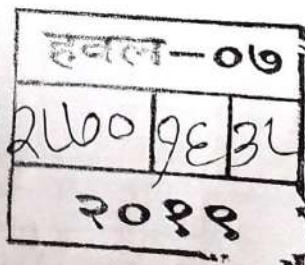 हवल-०७
२५७० १६ ३५
२०१९